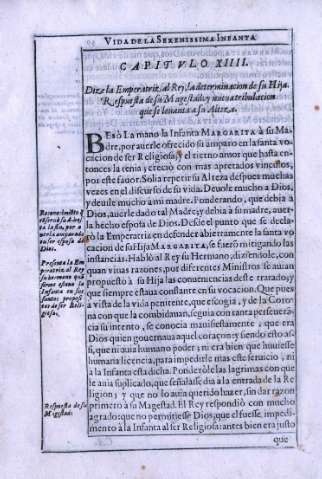 VIDA DE LA SERENISSIMA INFANTA
CAPITVLO XIIII.
Dize la Emperatriz al Rey, la determinacion de su Hija.
Respuesta de su Magestad, y nueua tribulacion
que se leuanta a su Alteza.
BEsò La mano la Infanta MARGARITA à su Ma-
dre, por auerle ofrecido su amparo en la santa vo-
cacion de ser Religiosa, y el tierno amor que hasta en-
tonces la tenia, y creciò con mas apretados vinculos,
por este fauor. Solia repetir su Alteza despues muchas
vezes en el discurso de su vida. Deuole mucho a Dios,
y deuole mucho à mi madre. Ponderando, que debia à
Dios, auerle dado tal Madre; y debia à su madre, auer-
la hecho esposa de Dios. Desde el punto que se decla-
rò la Emperatriz en defender abiertamente la santa vo-
cacion de su Hija MARGARITA, se fuerõ mitigando las
instancias. Hablò al Rey su Hermano, dizesendole, con
quan viuas razones, por diferentes Ministros se auia
propuesto à su Hija las conueniencias deste tratado; y
que siempre estaua constante en su vocacion. Que pues
a vista de la vida penitente, que escogia, y de la Coro-
na con que la combidauan, seguia con tanta perseuerã-
cia su intento, se conocia manifiestamente, que era
Dios quien gouernaua aquel coraçon; y siendo esto as-
si, que ni auia humano poder, ni ella queria, que huuiesse
humana licencia, para impedirle mas este seruicio, ni
à la Infanta esta dicha. Ponderòle las lagrimas con que
le auia suplicado, que señalasse dia à la entrada de la Re-
ligion; y que no lo auia querido hazer, sin dar razon
primero à su Magestad. El Rey respondiò con mucho
agrado: que no permitiesse Dios, que el fuesse, impedi-
mento à la Infanta al ser Religiosa: antes bien era justo
que
Presenta la Em-
peratriz al Rey
su hermano quã
firme estaua la
Infanta en sus
santos proposi-
tos de ser Reli-
giosa.
Respuesta de su
Magestad.